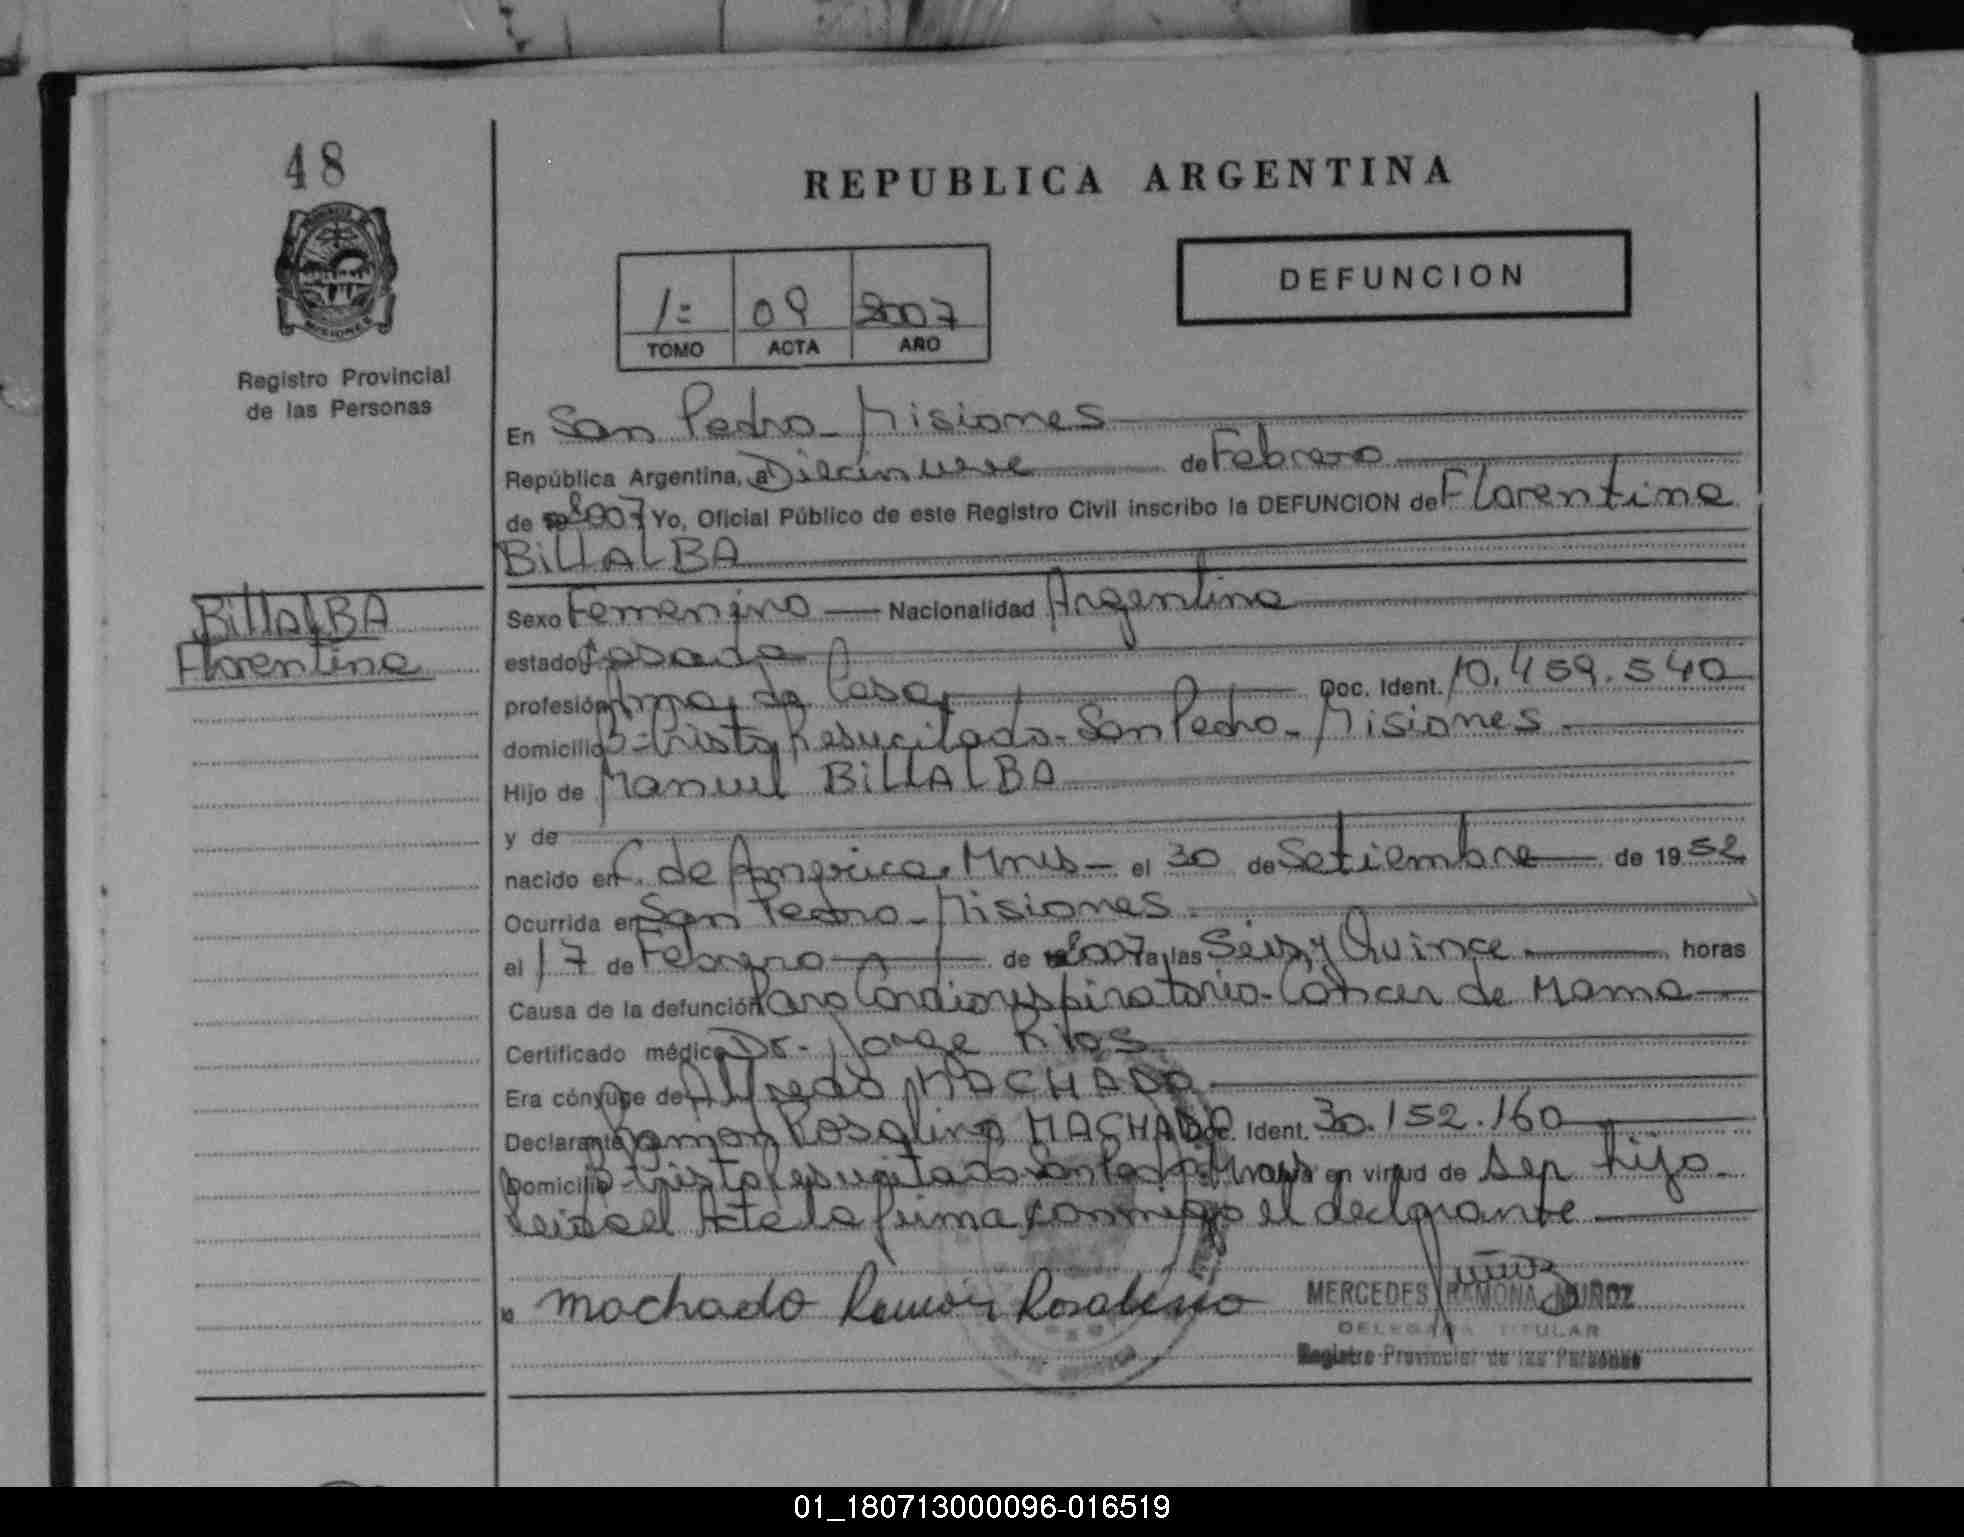 48
REPUBLICA ARGENTINA
DEFUNCION
1= 09 2007
TOMO ACTA AÑO
MISIONES
Registro Provincial
de las Personas
En San Pedro - Misiones
República Argentina, a Diecinueve de Febrero
de 2007 Yo, Oficial Público de este Registro Civil inscribo la DEFUNCION de Florentina
BillALBA
BillALBA
Florentina
Sexo Femenino Nacionalidad Argentina
estado Casada
profesión Ama de Casa Doc. Ident. 10.459.540
domicilio Bº Cristo Resucitado - San Pedro - Misiones
Hijo de Manuel BillALBA
y de
nacido en C. de America. Mnes - el 30 de Setiembre de 1952
Ocurrida en San Pedro - Misiones
el 17 de Febrero de 2007 a las Seis y Quince horas
Causa de la defunción Paro Cardiorespiratorio - Cáncer de Mama
Certificado médico Dr. Jorge Rios
Era cónyuge de Alfredo MACHADO
Declarante Ramon Rosalino MACHADO Doc. Ident. 30.152.160
Domicilio Bº Cristo Resucitado San Pedro en virtud de ser hijo.
Leida el Acta la firma conmigo el declarante
machado Ramón Rosalino
MERCEDES RAMONA MUÑOZ
DELEGADA TITULAR
Registro Provincial de las Personas
01_180713000096-016519